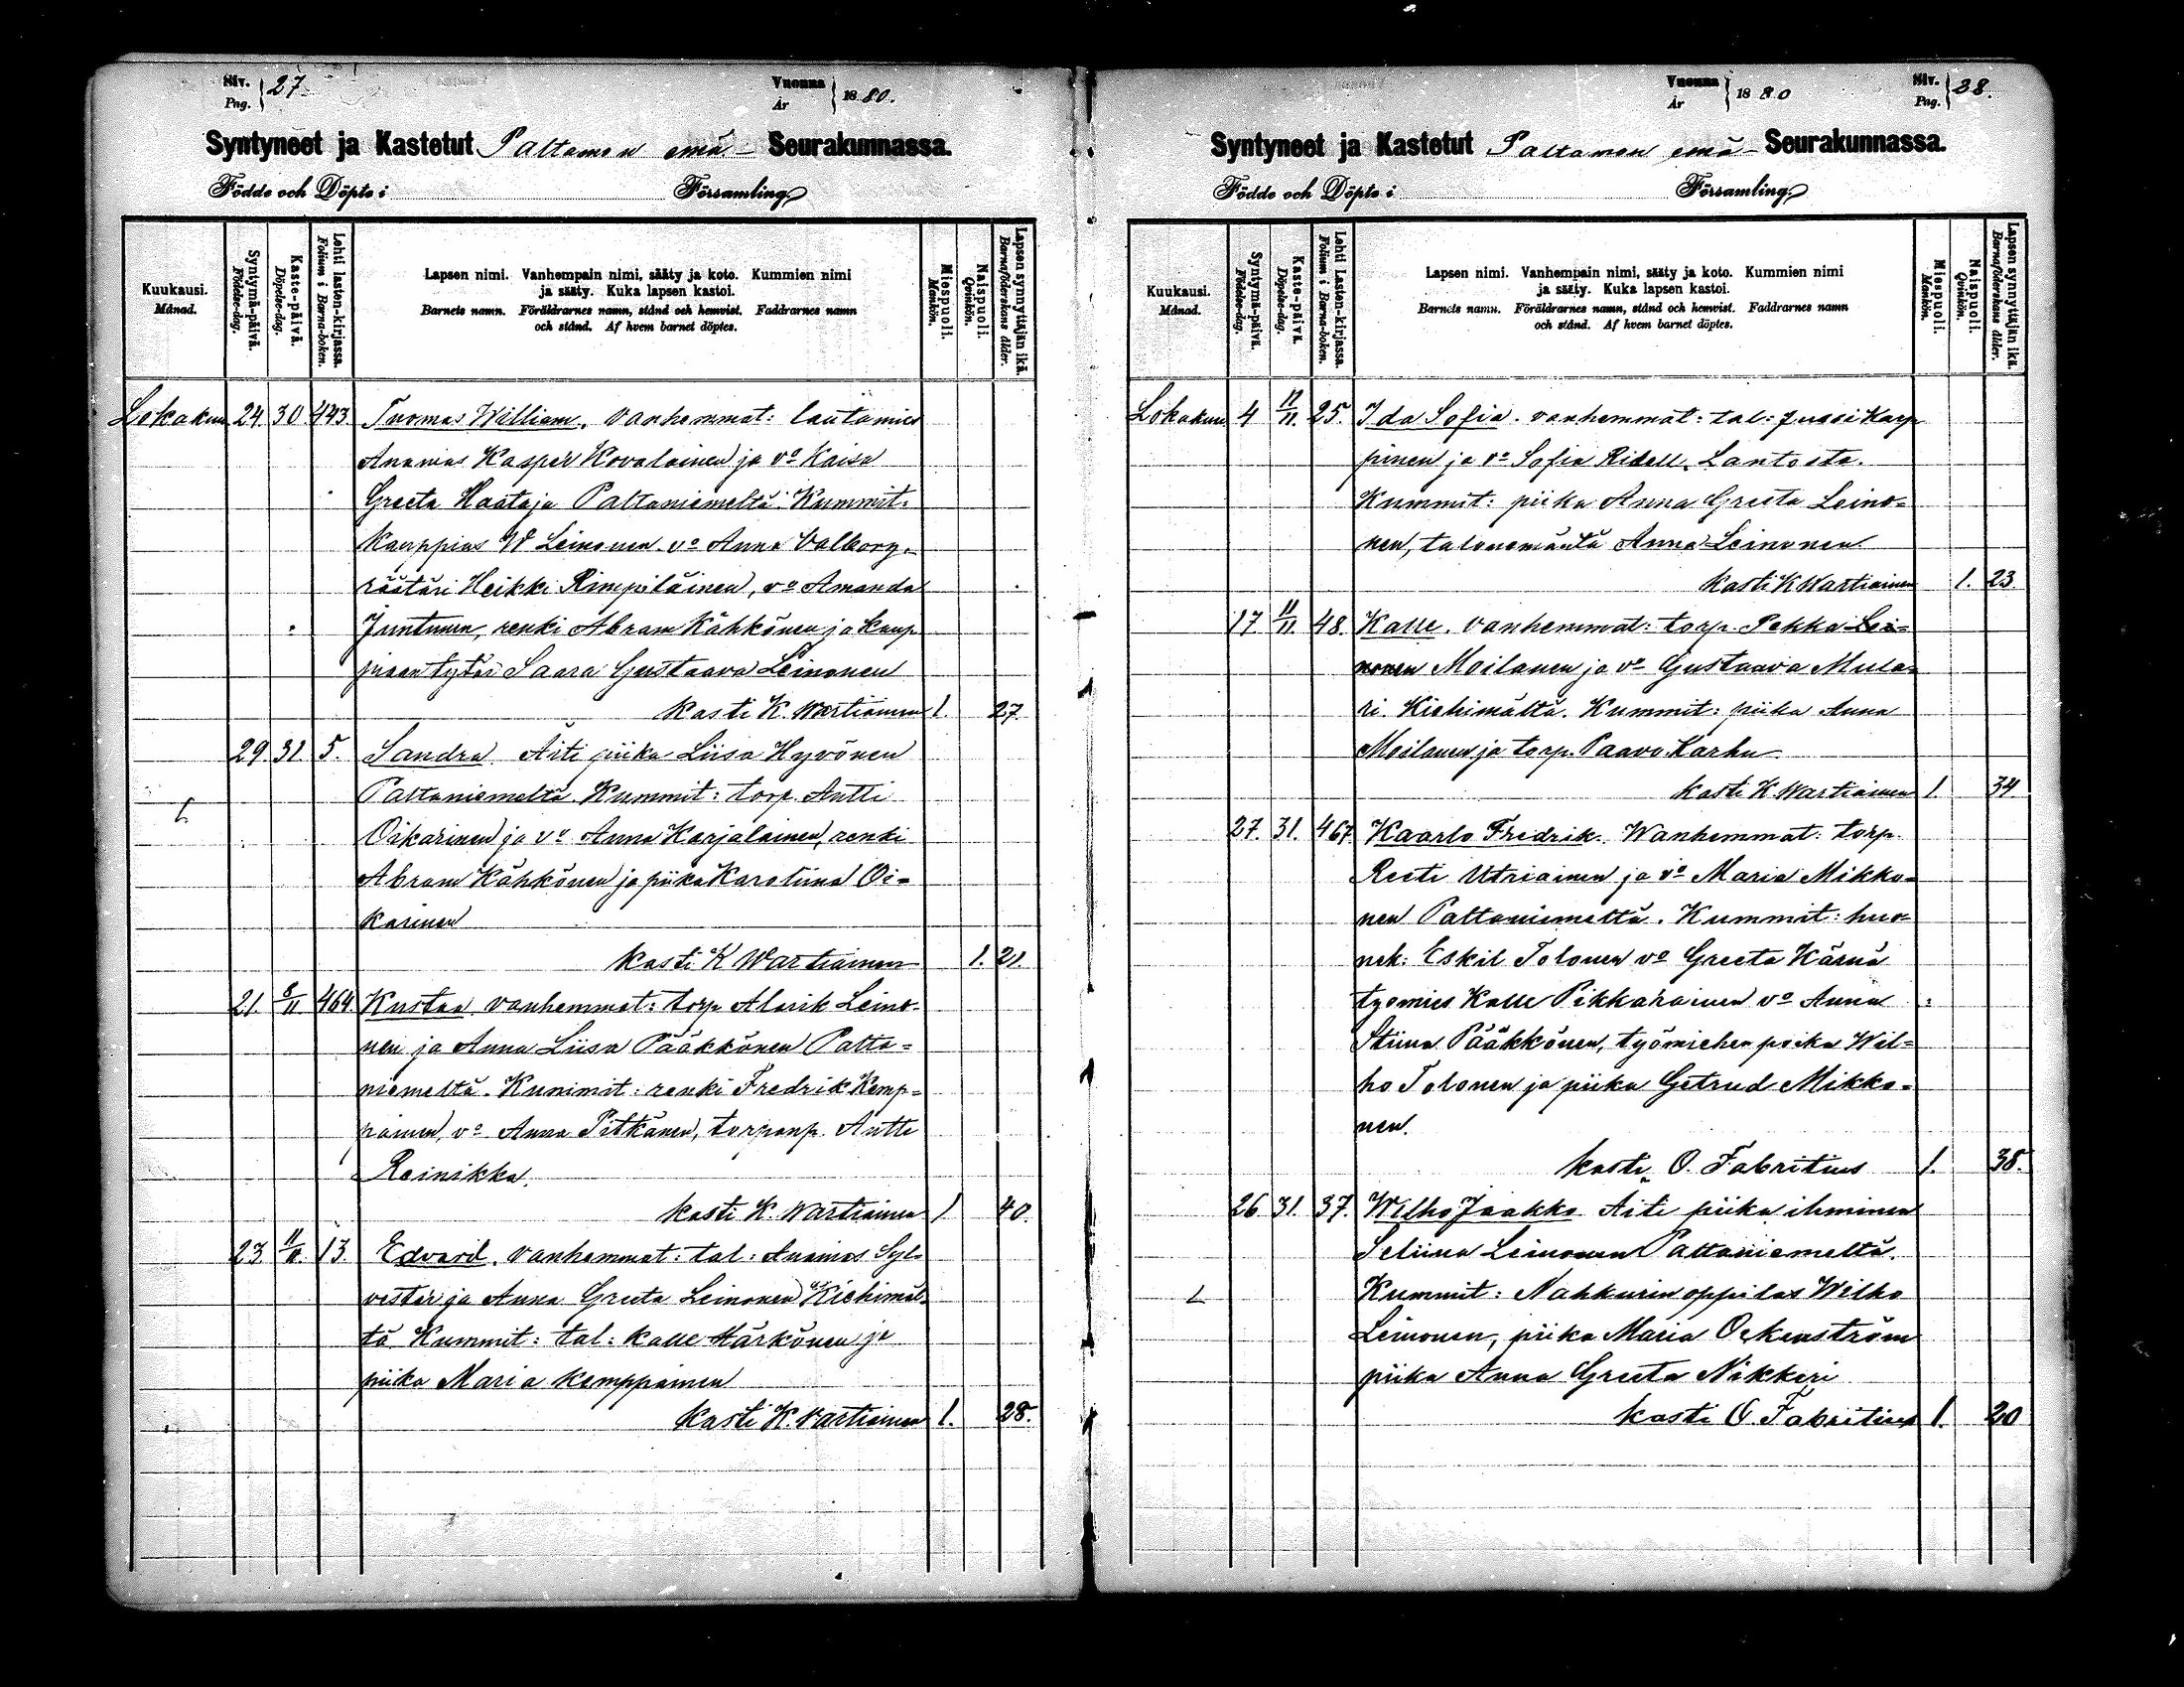 Siv. Pag. 27
Vuonna År 1880.
Syntyneet ja Kastetut Paltamon emä- Seurakunnassa.
Födde och Döpte i Församling
Kuukausi. Månad.
Syntymä-päivä. Födelse-dag.
Kaste-päivä. Döpelse-dag.
Lehti lasten-kirjassa. Folium i Barna-boken.
Lapsen nimi. Vanhempain nimi, sääty ja koto. Kummien nimi
ja sääty. Kuka lapsen kastoi.
Barnets namn. Föräldrarnes namn, stånd och hemvist. Faddrarnes namn
och stånd. Af hvem barnet döptes.
Miespuoli. Mankön.
Naispuoli. Qvinkön.
Lapsen synnyttäjän ikä. Barnaföderskans ålder.
Lokakuu 24. 30. 443. Tuomas William. Vanhemmat: lautamies
Ananias Kasper Kovalainen ja vo Kaisa
Greeta Haataja Paltaniemeltä. Kummit:
Kauppias W Leinonen vo Anna Valborg,
räätäri Heikki Rimpiläinen, vo Amanda
Juntunen, renki Abram Kähkönen ja kaup
piaan tytär Saara Gustaava Leinonen
kasti K. Wartiainen 1. 27
29. 31. 5. Sandra. Äiti piika Liisa Hyvönen
Paltaniemeltä. Kummit: torp. Antti
Oikarinen ja vo Anna Karjalainen, renki
Abram Kähkönen ja piika Karoliina Oi-
karinen
kasti K Wartiainen 1. 21.
21. 8/11 464. Kustaa vanhemmat: torp Alarik Leino-
nen ja Anna Liisa Pääkkönen Palta-
niemeltä. Kummit: renki Fredrik Kemp-
painen, vo Anna Pitkänen, torpanp. Antti
Reinikka.
kasti K. Wartiainen 1 40.
23. 11/11. 13. Edvard. vanhemmat: tal: Ananias Syl-
vester ja Anna Greeta Leinonen Kiehimäl-
tä Kummit: tal: Kalle Härkönen ja
piika Maria Kemppainen
Kasti K. Vartiainen 1. 28.
Vuonna År 1880
Siv. Pag. 38.
Syntyneet ja Kastetut Paltamon emä- Seurakunnassa.
Födde och Döpte i Församling
Kuukausi. Månad.
Syntymä-päivä. Födelse-dag.
Kaste-päivä. Döpelse-dag.
Lehti Lasten-kirjassa. Folium i Barna-boken.
Lapsen nimi. Vanhempain nimi, sääty ja koto. Kummien nimi
ja sääty. Kuka lapsen kastoi.
Barnets namn. Föräldrarnes namn, stånd och hemvist. Faddrarnes namn
och stånd. Af hvem barnet döptes.
Miespuoli. Mankön.
Naispuoli. Qvinkön.
Lapsen synnyttäjän ikä. Barnaföderskans ålder.
Lokakuu 4 /11. 25. Ida Sofia. vanhemmat: tal: Jussi Karp
pinen ja vo Sofia Ridell. Lantosta.
Kummit: piika Anna Greeta Leino-
nen, talonemäntä Anna Leinonen
kasti K Wartiainen 1. 23
17. 11/11. 48. Kalle. vanhemmat: torp. Pekka Lei-
nonen Moilanen ja vo Gustaava Mula-
ri. Kiehimältä. Kummit: piika Anna
Moilanen ja torp. Paavo Karhu.
kasti K. Wartiainen 1. 34
27. 31. 467. Kaarlo Fredrik. Wanhemmat: torp.
Reeti Utriainen ja vo Maria Mikko-
nen Paltaniemeltä. Kummit: huo-
nek: Eskil Tolonen vo Greeta Kärnä
tyomies Kalle Pikkarainen vo Anna
Stiina Pääkkönen, työmiehen poika Wil-
ho Tolonen ja piika Getrud Mikko-
nen.
kasti O. Fabritius 1. 38.
26 31. 37. Wilho Jaakko Äiti piika ihminen
Seliina Leinonen Paltaniemeltä.
Kummit: Nahkurin oppilas Wilho
Leinonen, piika Maria
piika Anna Greeta Nikkeri
kasti O. Fabritius 1. 20